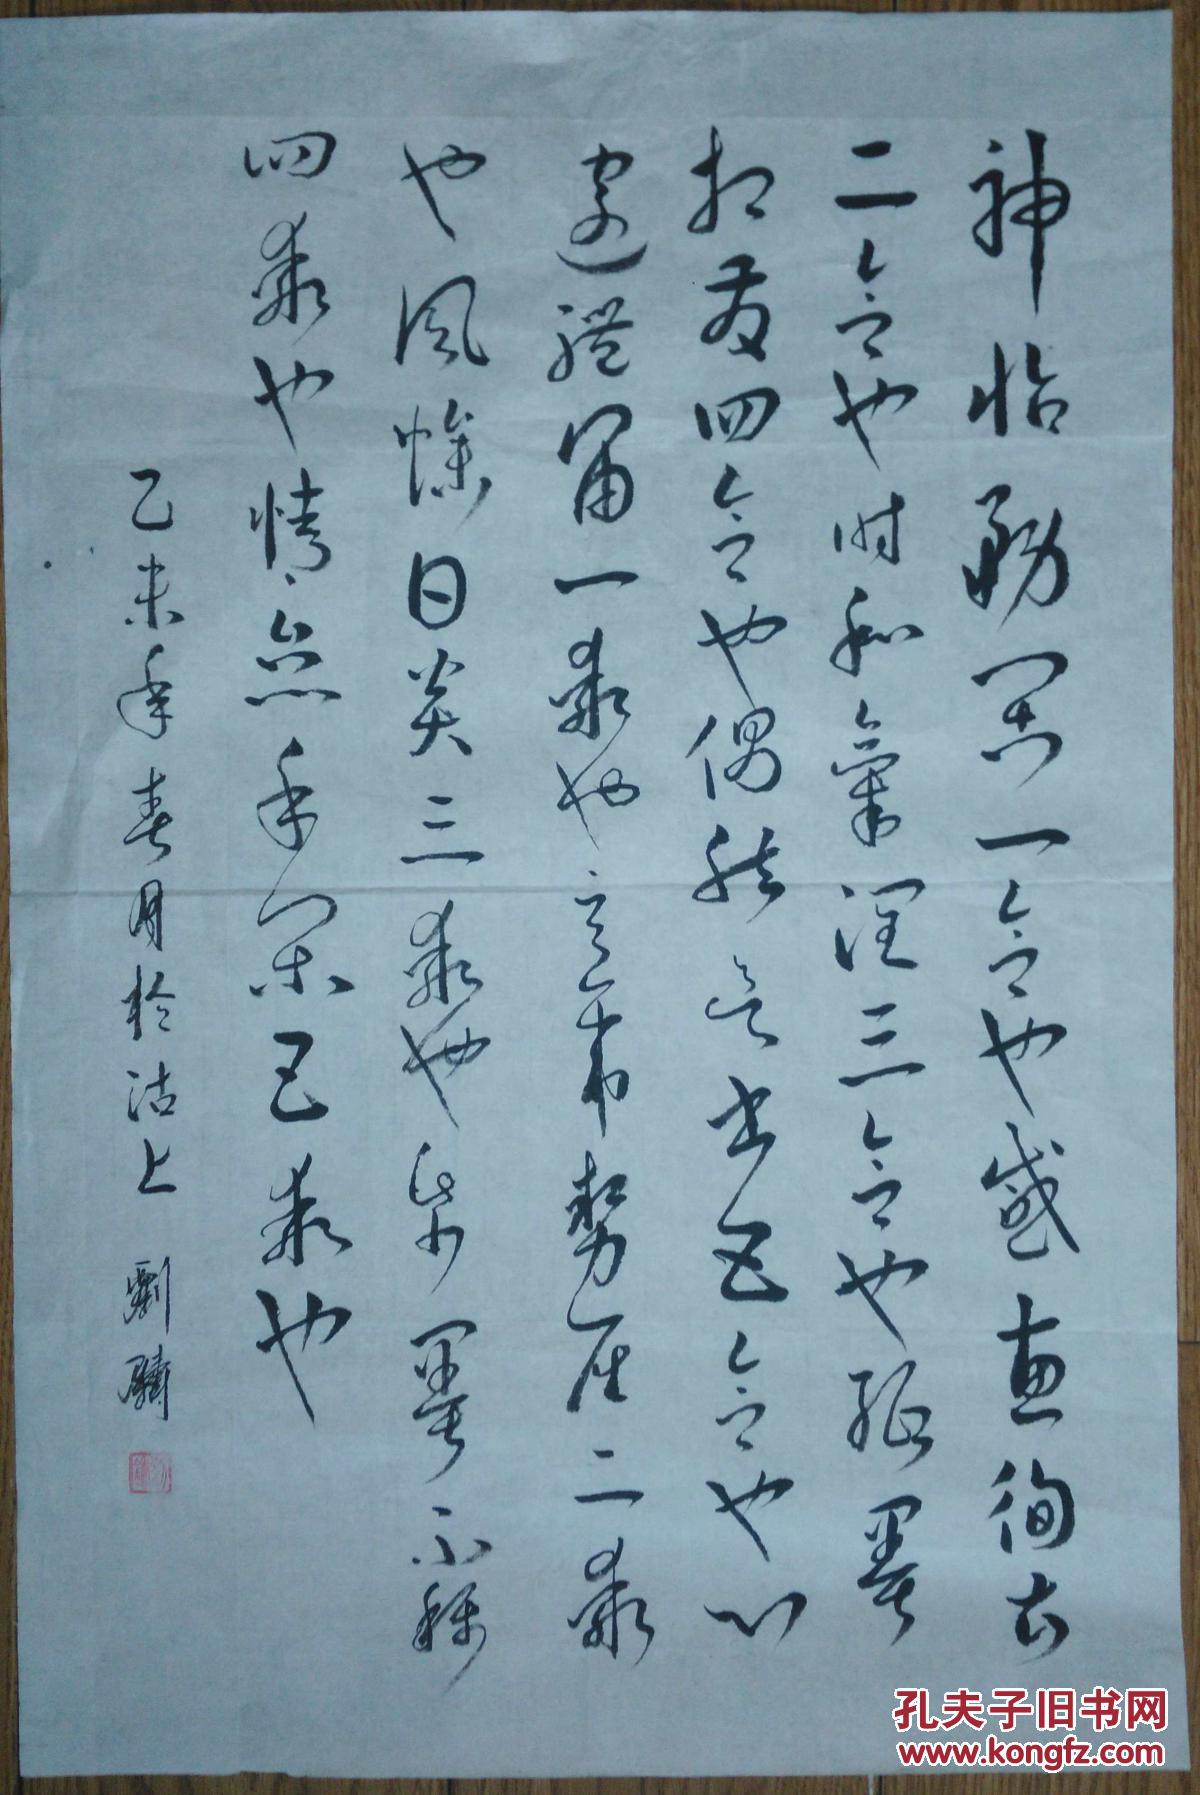 神怡務閑一合也感惠徇知
二合也時和氣潤三合也紙墨
相發四合也偶然欲書五合也心
遽體留一乖也意違勢屈二乖
也風燥日炎三乖也紙墨不稱
四乖也情怠手闌五乖也
乙未年春月於沽上 劉
孔夫子旧书网
www.kongfz.com